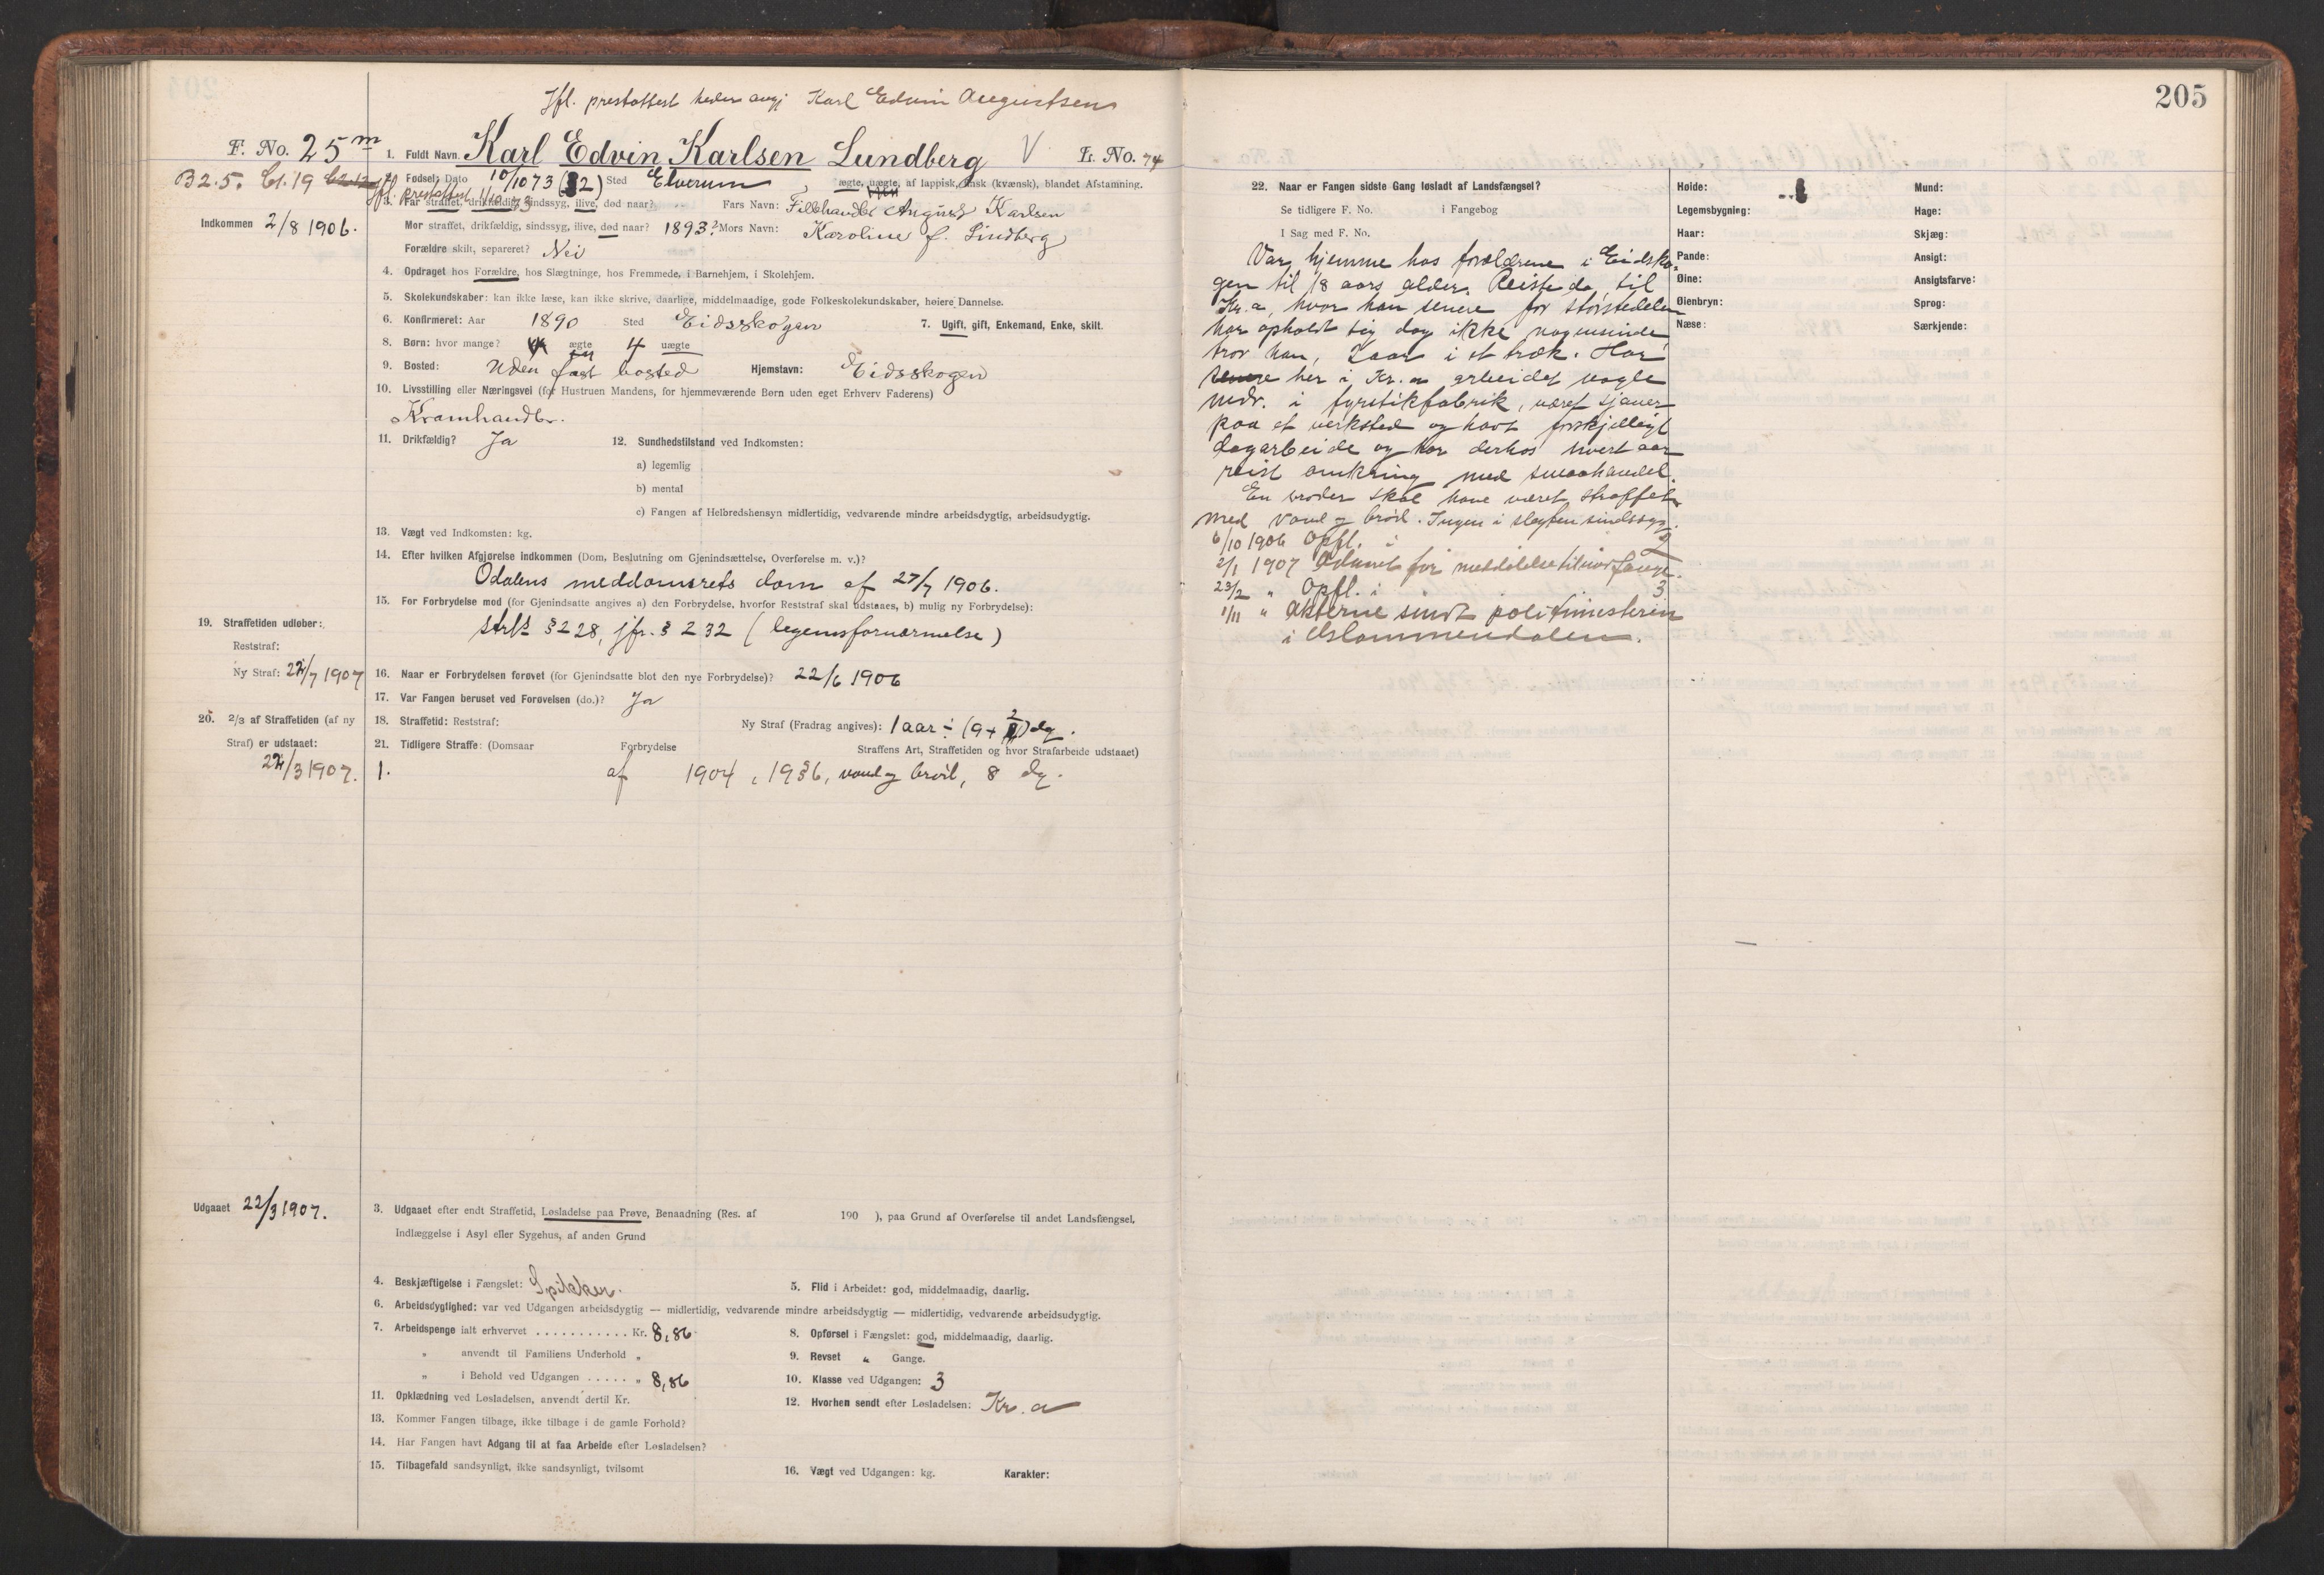 205
Jfl. prestattest heder angj Karl Edvin Augustsen
F. No. 25 m 1. Fuldt Navn. Karl Edvin Karlsen Lundberg V L. No. 74
B2.5. Cl.19
2. Fødsel: Dato 10/10 73 (32) Sted Elverum, ægte, uægte, af lappisk, finsk (kvænsk), blandet Afstamning.
Jfl. prestattest 11/10 73
3. Far straffet, drikfældig, sindssyg, ilive, død naar? Fars Navn: Fillehandler August Karlsen
Indkommen 2/8 1906.
Mor straffet, drikfældig, sindssyg, ilive, død naar? 1893? Mors Navn: Karoline f. Lindberg
Forældre skilt, separeret? Nei
4. Opdraget hos Forældre, hos Slægtninge, hos Fremmede, i Barnehjem, i Skolehjem.
5. Skolekundskaber: kan ikke læse, kan ikke skrive, daarlige, middelmaadige, gode Folkeskolekundskaber, høiere Dannelse.
6. Konfirmeret: Aar 1890 Sted Eidsskogen 7. Ugift, gift, Enkemand, Enke, skilt.
8. Børn: hvor mange? ægte 4 uægte
9. Bosted: Uden fast bosted Hjemstavn: Eidsskogen
10. Livsstilling eller Næringsvei (for Hustruen Mandens, for hjemmeværende Børn uden eget Erhverv Faderens)
Kramhandler.
11. Drikfældig? Ja 12. Sundhedstilstand ved Indkomsten:
a) legemlig
b) mental
c) Fangen af Helbredshensyn midlertidig, vedvarende mindre arbeidsdygtig, arbeidsudygtig.
13. Vægt ved Indkomsten: kg.
14. Efter hvilken Afgjørelse indkommen (Dom, Beslutning om Gjenindsættelse, Overførelse m. v.)?
Odalens meddomsrets dom af 27/7 1906.
15. For Forbrydelse mod (for Gjenindsatte angives a) den Forbrydelse, hvorfor Reststraf skal udstaaes, b) mulig ny Forbrydelse):
strl. § 228, jfr. § 232 (legemsfornærmelse)
19. Straffetiden udløber:
Reststraf:
Ny Straf: 22/7 1907
16. Naar er Forbrydelsen forøvet (for Gjenindsatte blot den nye Forbrydelse)? 22/6 1906
17. Var Fangen beruset ved Forøvelsen (do.)? Ja
20. 2/3 af Straffetiden (af ny
Straf) er udstaaet:
22/3 1907.
18. Straffetid: Reststraf: Ny Straf (Fradrag angives): 1 aar ÷ (9 + 2) dg.
21. Tidligere Straffe: (Domsaar Forbrydelse Straffens Art, Straffetiden og hvor Strafarbeide udstaaet)
1. af 1904, vand og brød, 8 dg.
Udgaaet 22/3 1907.
3. Udgaaet efter endt Straffetid, Løsladelse paa Prøve, Benaadning (Res. af 190 ), paa Grund af Overførelse til andet Landsfængsel,
Indlæggelse i Asyl eller Sygehus, af anden Grund
4. Beskjæftigelse i Fængslet: Spikker. 5. Flid i Arbeidet: god, middelmaadig, daarlig.
6. Arbeidsdygtighed: var ved Udgangen arbeidsdygtig — midlertidig, vedvarende mindre arbeidsdygtig — midlertidig, vedvarende arbeidsudygtig.
7. Arbeidspenge ialt erhvervet . . . . . . . . . . . Kr. 8,86 8. Opførsel i Fængslet: god, middelmaadig, daarlig.
" anvendt til Familiens Underhold " 9. Revset " Gange.
" i Behold ved Udgangen . . . . . " 8,86 10. Klasse ved Udgangen: 3
11. Opklædning ved Løsladelsen, anvendt dertil Kr. 12. Hvorhen sendt efter Løsladelsen: Kr.a
13. Kommer Fangen tilbage, ikke tilbage i de gamle Forhold?
14. Har Fangen havt Adgang til at faa Arbeide efter Løsladelsen?
15. Tilbagefald sandsynligt, ikke sandsynligt, tvilsomt 16. Vægt ved Udgangen: kg. Karakter:
22. Naar er Fangen sidste Gang løsladt af Landsfængsel?
Se tidligere F. No. i Fangebog
I Sag med F. No.
Var hjemme hos forældrene i Eidsko-
gen til 18 aars alder. Reiste da til
Kr.a, hvor han senere for størstedelen
har opholdt sig dog ikke nogensinde
tror han, 2 aar i et træk. Har
senere her i Kr.a arbeidet nogle
mdr. i fyrstikfabrik, været sjauer
paa et verksted og havt forskjelligt
dagarbeide og har derhos hvert aar
reist omkring med smaahandel.
En broder skal have været straffet
med vand og brød. Ingen i slegten sindssyg.
6/10 1906 Opfl. i 2
2/1 1907 Advaret for meddelelse til fange.
23/2 " Opfl. i 3
1/11 " Akterne sendt politimesteren
i Glommendalen.
Høide:
Legemsbygning:
Haar:
Pande:
Øine:
Øienbryn:
Næse:
Mund:
Hage:
Skjæg:
Ansigt:
Ansigtsfarve:
Sprog:
Særkjende: